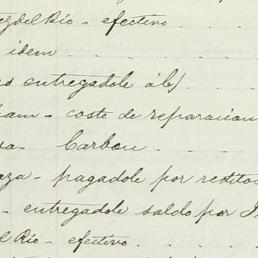 del Rio - efectivo
idem
entregadole á
- costo de reparacion
- Carbon
- pagadole por reditos
- entregadole saldo por
Rio - efectivo